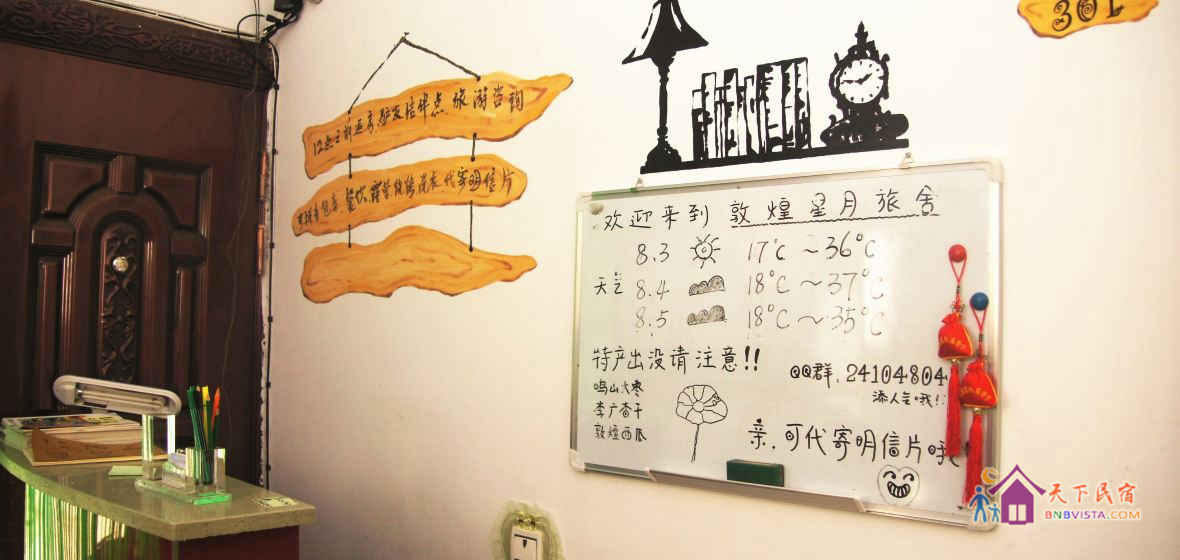 301
12点之前退房,
旅游咨询
代寄明信片
欢迎来到敦煌星月旅舍
8.3 17℃～36℃
天气 8.4 18℃～37℃
8.5 18℃～35℃
特产出没请注意!!
鸣山大枣
李广杏干
敦煌西瓜
QQ群,24104804
添人气哦!
亲,可代寄明信片哦
天下民宿
BNBVISTA.COM